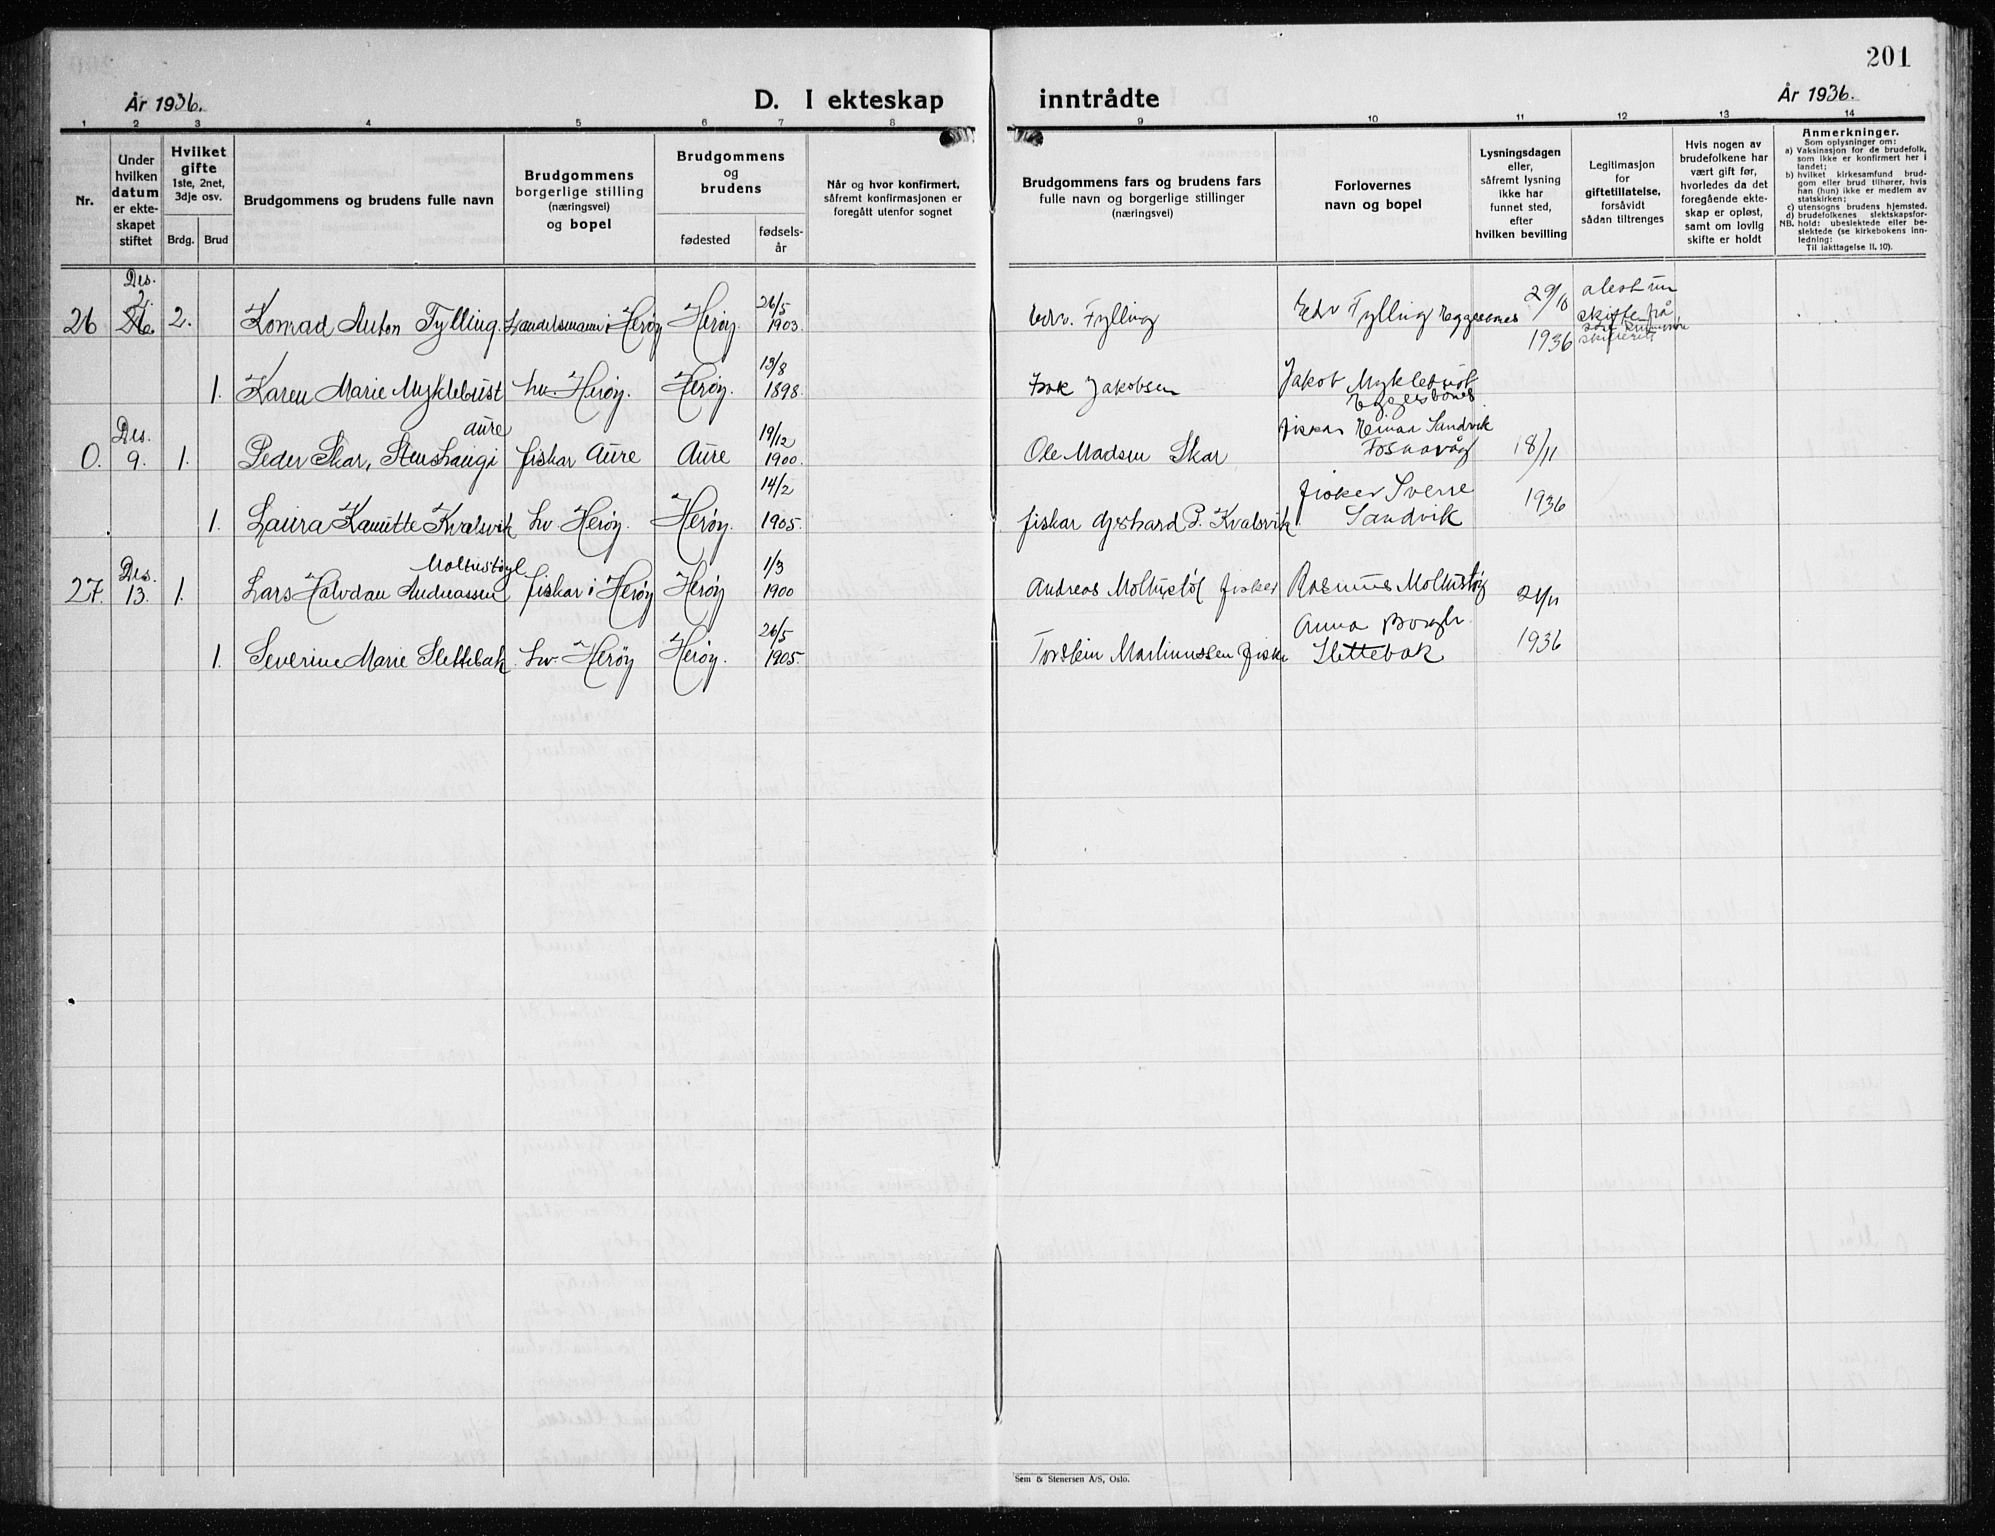 201
År 1936.
D. I ekteskap inntrådte
År 1936.
1 2 3 4 5 6 7 8 9 10 11 12 13 14
Nr.
Under
hvilken
datum
er ekte-
skapet
stiftet
Hvilket
gifte
1ste, 2net,
3dje osv.
Brdg. Brud
Brudgommens og brudens fulle navn
Brudgommens
borgerlige stilling
(næringsvei)
og bopel
Brudgommens
og
brudens
fødested
fødsels-
år
Når og hvor konfirmert,
såfremt konfirmasjonen er
foregått utenfor sognet
Brudgommens fars og brudens fars
fulle navn og borgerlige stillinger
(næringsvei)
Forlovernes
navn og bopel
Lysningsdagen
eller,
såfremt lysning
ikke har
funnet sted,
efter
hvilken bevilling
Legitimasjon
for
giftetillatelse,
forsåvidt
sådan tiltrenges
Hvis nogen av
brudefolkene har
vært gift før,
hvorledes da det
foregående ekte-
skap er opløst,
samt om lovlig
skifte er holdt
Anmerkninger.
Som oplysninger om:
a) Vaksinasjon for de brudefolk,
som ikke er konfirmert her i
landet;
b) hvilket kirkesamfund brud-
gom eller brud tilhører, hvis
han (hun) ikke er medlem av
statskirken;
c) utensogns brudens hjemsted.
d) brudefolkenes slektskapsfor-
hold: ubeslektede eller be-
slektede (se kirkebokens inn-
ledning:
NB.
Til iakttagelse II. 10).
Des.
2.
26 2. Konrad Anton Fylling. Handelsmann i Herøy Herøy. 26/5 1903. Edv. Fylling Edv Fylling Eggesbønes 29/10 1936
skifte frå
skifterett
1. Karen Marie Myklebust hv. Herøy. Herøy. 13/8 1898. Isak Jakobsen Jakob Myklebust
Eggesbønes
Aure
Des.
0. 9. 1. Peder Skar, Stenshaugi fiskar Aure Aure 19/12 1900. Ole Madsen Skar fiskar Einar Sandvik
Fosnavåg 18/11 1936
1. Laura Kanutte Kvalsvik hv. Herøy. Herøy. 14/2 1905. fiskar Gjerhard P. Kvalsvik fisker Sverre
Sandvik
Moltustøyl
Des.
27. 13. 1. Lars Halvdan Andreassen fiskar i Herøy Herøy 1/3 1900 Andreas Moltustøl fisker Rasmus Moltustøy 21/11 1936
1. Severine Marie Slettebak hv. Herøy Herøy. 26/5 1905. Torstein Martinussen fiske Anna Borgh.
Slettebak
Sem & Stenersen A/S, Oslo.